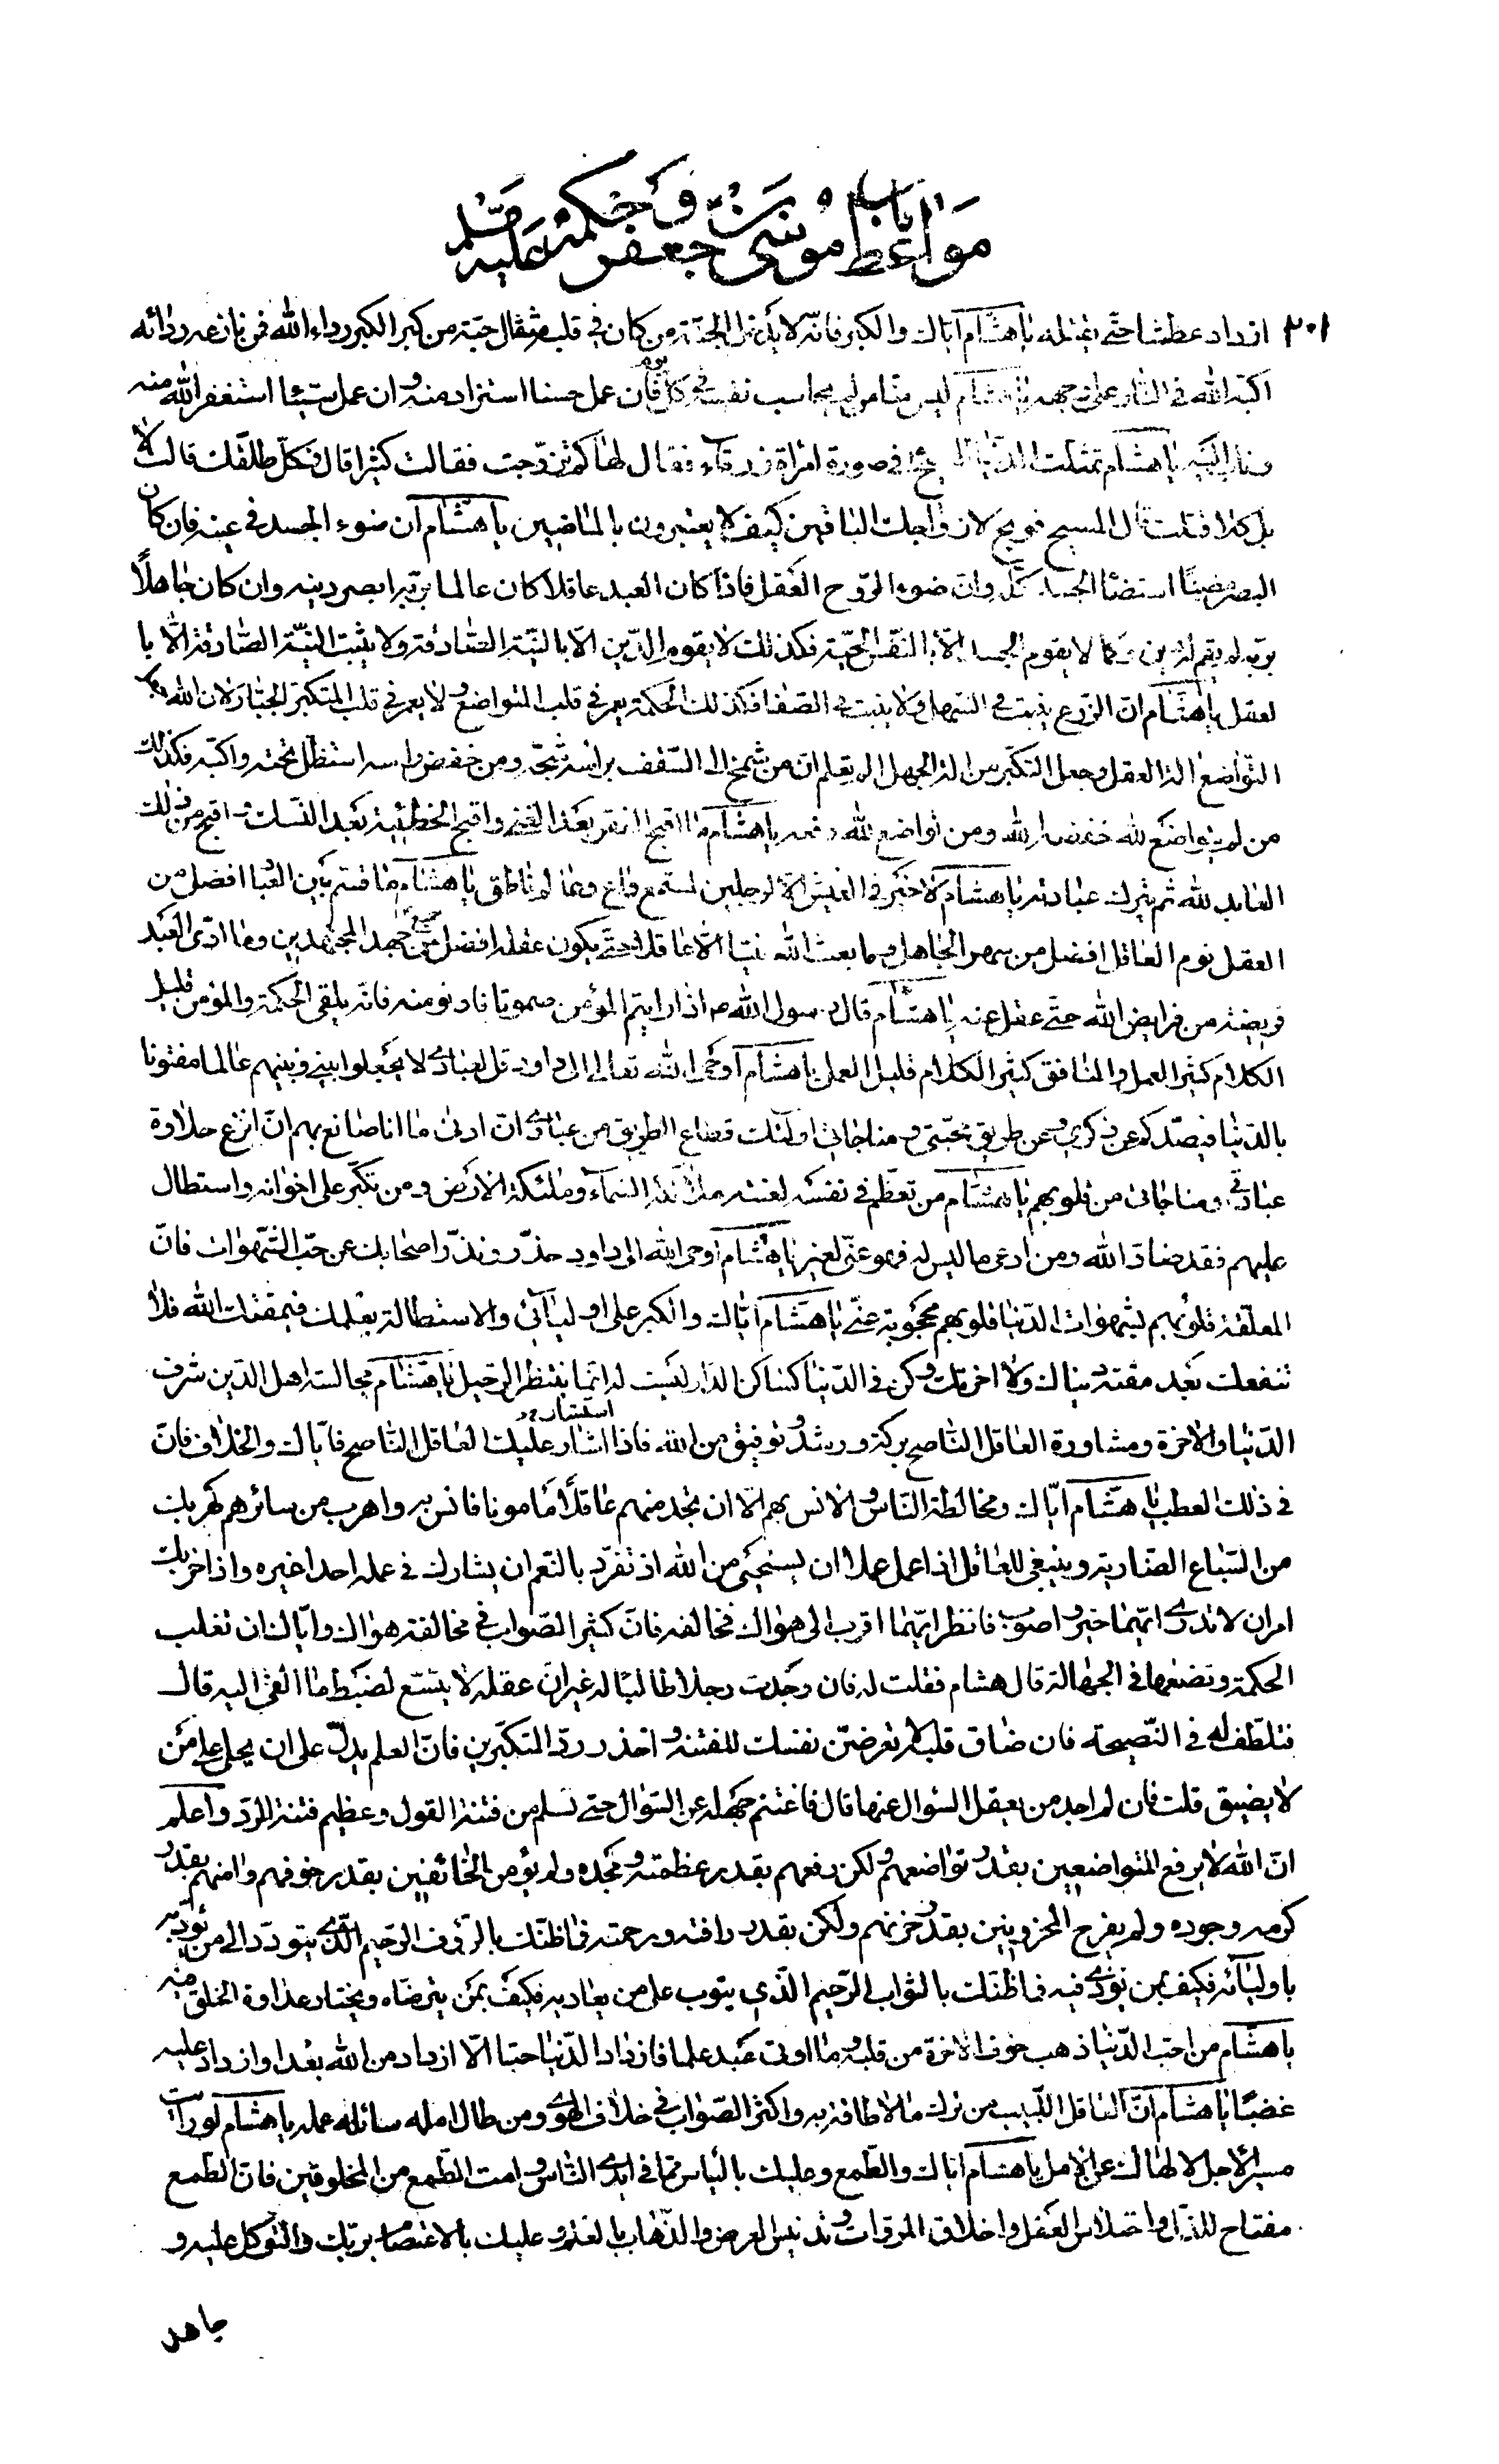 باب
مواعظ موسى بن جعفر وحكمه عليه السلام
٢٠١ ازداد عطشا حتى يقتله يا هشام اياك والكبر فانه لا يدخل الجنة من كان في قلبه مثقال حبة من كبر الكبر رداء الله فمن نازعه ردائه
اكبه الله في النار على وجهه يا هشام ليس منا من لم يحاسب نفسه في كل يوم فان عمل حسنا استزاد منه وان عمل سيئا استغفر الله منه
وتاب اليه يا هشام تمثلت الدنيا للمسيح في صورة امراة زرقاء فقال لها كم تزوجت فقالت كثيرا قال فكل طلقك قالت لا
بل كلا قتلت قال المسيح فويح لازواجك الباقين كيف لا يعتبرون بالماضين يا هشام ان ضوء الجسد في عينه فان كان
البصر مضيئا استضاء الجسد كله وان ضوء الروح العقل فاذا كان العبد عاقلا كان عالما بربه ابصر دينه وان كان جاهلا
بربه لم يقم له دين وكما لا يقوم الجسد الا بالنفس الحية فكذلك لا يقوم الدين الا بالنية الصادقة ولا يثبت النية الصادقة الا با
لعقل يا هشام ان الزرع ينبت في السهل ولا ينبت في الصفا فكذلك الحكمة يعمر في قلب المتواضع ولا يعمر في قلب المتكبر الجبار لان الله جعل
التواضع الة العقل وجعل التكبر من الة الجهل الم يعلم ان من شمخ الى السقف براسه شجه ومن خفض راسه استظل تحته واكنه فكذلك
من لم يتواضع لله خفضه الله ومن تواضع لله رفعه يا هشام ما اقبح الفقر بعد الغنى واقبح الخطيئة بعد النسك واقبح من ذلك
العابد لله ثم يترك عبادته يا هشام لا خير في العيش الا لرجلين لمستمع واع وعالم ناطق يا هشام ما قسم بين العباد افضل من
العقل نوم العاقل افضل من سهر الجاهل وما بعث الله نبيا الا عاقلا حتى يكون عقله افضل من جميع جهد المجتهدين وما ادى العبد
فريضة من فرايض الله حتى عقل عنه يا هشام قال رسول الله ص اذا رايتم المؤمن صموتا فادنو منه فانه يلقى الحكمة والمؤمن قليل
الكلام كثير العمل والمنافق كثير الكلام قليل العمل يا هشام اوحى الله تعالى الى داود قل لعبادي لا يجعلوا بيني وبينهم عالما مفتونا
بالدنيا فيصدكم عن ذكري وعن طريق محبتي ومناجاتي اولئك قطاع الطريق من عبادي ان ادنى ما انا صانع بهم ان انزع حلاوة
عبادتي ومناجاتي من قلوبهم يا هشام من تعظم في نفسه لعنته ملائكة السماء وملئكة الارض ومن تكبر على اخوانه واستطال
عليهم فقد ضاد الله ومن ادعى ما ليس له فهو عني لغيره يا هشام اوحى الله الى داود حذر ونذر اصحابك عن حب الشهوات فان
المعلقة قلوبهم بشهوات الدنيا قلوبهم محجوبة عني يا هشام اياك والكبر على اوليائي والاستطالة بعلمك فيمقتك الله فلا
تنفعك بعد مقته دنياك ولا اخرتك وكن في الدنيا كساكن الدار ليست له انما ينتظر الرحيل يا هشام مجالسة اهل الدين شرف
الدنيا والاخرة ومشاورة العاقل الناصح بركة ورشد وتوفيق من الله فاذا اشار عليك العاقل الناصح فاياك والخلاف فان
في ذلك العطب يا هشام اياك ومخالطة الناس والانس بهم الا ان تجد منهم عاقلا مامونا فانس به واهرب من سائرهم كهربك
من السباع الضارية وينبغي للعاقل اذا عمل عملا ان يستحيي من الله اذ تفرد بالنعم ان يشارك في عمله احدا غيره واذا خر بك
امران لا تدري ايهما خير واصوب فانظر ايهما اقرب الى هواك فخالفه فان كثير الصواب في مخالفة هواك واياك ان تغلب
الحكمة وتضعها في الجهالة قال هشام فقلت له فان وجدت رجلا طالبا له غير ان عقله لا يتسع لضبط ما القى اليه قال
فتلطف له في النصيحة فان ضاق قلبه فلا تعرضن نفسك للفتنة واحذر رد المتكبرين فان العلم يدل على ان يحلى على من
لا يضيق قلت فان لم اجد من يعقل السؤال عنها قال فاغتنم جهله عن السؤال حتى تسلم من فتنة القول وعظيم فتنة الرد واعلم
ان الله لا يرفع المتواضعين بقدر تواضعهم ولكن رفعهم بقدر عظمته ومجده ولم يؤمن الخائفين بقدر خوفهم وامنهم بقدر
كرمه وجوده ولم يفرح المحزونين بقدر حزنهم ولكن بقدر رافته ورحمته فما ظنك بالرؤف الرحيم الذي يتودد الى من يؤذيه
باوليائه فكيف بمن يؤذى فيه فما ظنك بالتواب الرحيم الذي يتوب على من يعاديه فكيف بمن يترضاه ويختار عداوة الخلق فيه
يا هشام من احب الدنيا ذهب خوف الاخرة من قلبه وما اوتي عبد علما فازداد الدنيا حبا الا ازداد من الله بعدا وازداد عليه
غضبا يا هشام ان العاقل اللبيب من ترك ما لا طاقة به واكثر الصواب في خلاف الهوى ومن طال امله ساء عمله يا هشام لو رايت
مسير الاجل لالهاك عن الامل يا هشام اياك والطمع وعليك بالياس مما في ايدي الناس وامت الطمع من المخلوقين فان الطمع
مفتاح للذل واختلاس العقل واخلاق المروات وتدنيس العرض والذهاب بالعلم وعليك بالاعتصام بربك والتوكل عليه و
جاهد